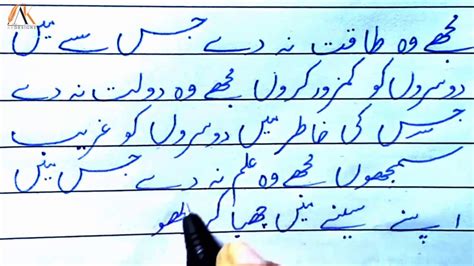 AK
DESIGNS
مجھے وہ طاقت نہ دے جس سے میں
دوسروں کو کمزور کروں مجھے وہ دولت نہ دے
جس کی خاطر میں دوسروں کو غریب
سمجھوں مجھے وہ علم نہ دے جس میں
اپنے سینے میں چھپا کر